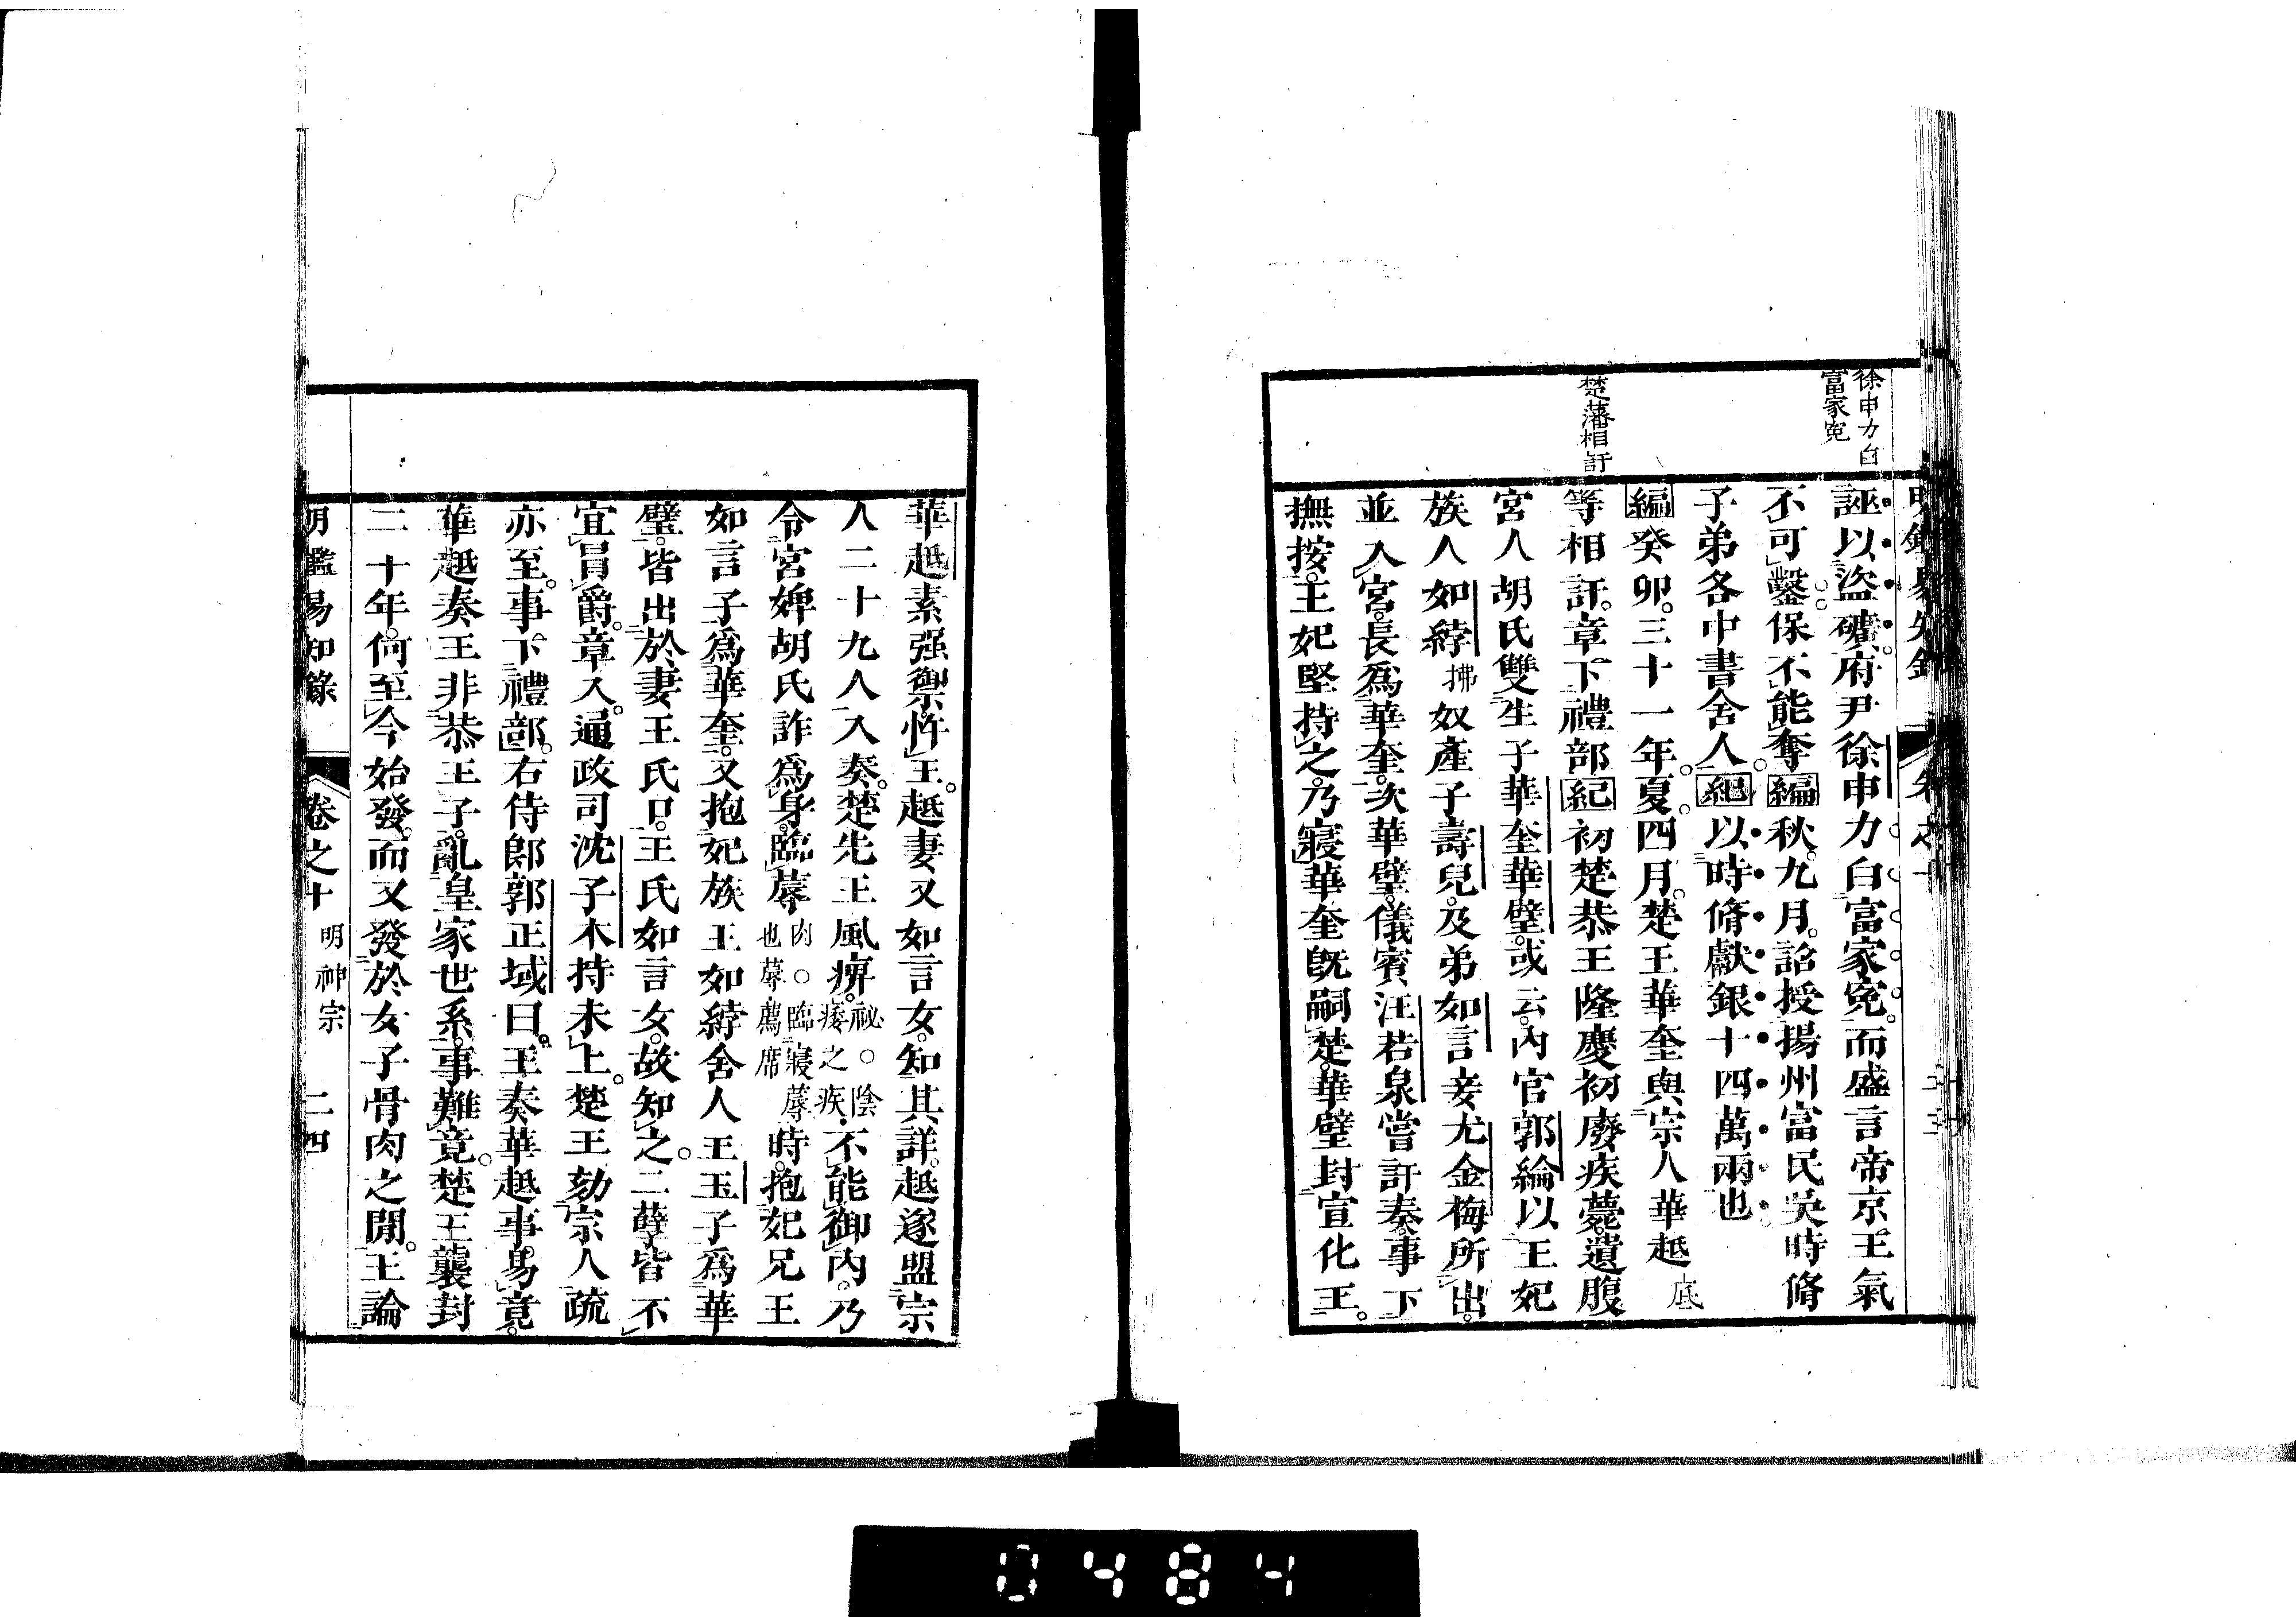 徐申力白
富家冤
楚藩相訐
誣以盜礦府尹徐申力白富家冤而盛言帝京王氣
不可鑿保不能奪編秋九月詔授揚州富民吳時脩
子弟各中書舍人紀以時脩獻銀十四萬兩也
編癸卯三十一年夏四月楚王華奎與宗人華越底
等相訐章下禮部紀初楚恭王隆慶初廢疾薨遺腹
宮人胡氏雙生子華奎華璧或云內官郭綸以王妃
族人如綍拂奴產子壽兒及弟如言妾尤金梅所出
並入宮長為華奎次華璧儀賓汪若泉嘗訐奏事下
撫按王妃堅持之乃寢華奎既嗣楚華璧封宣化王
華越素强禦忤王越妻又如言女知其詳越遂盟宗
人二十九人入奏楚先王風痹祕○陰痿之疾不能御內乃
令宮婢胡氏詐為身臨蓐肉○臨寢蓐也蓐薦席時抱妃兄王
如言子為華奎又抱妃族王如綍舍人王玉子為華
璧皆出於妻王氏口王氏如言女故知之二孽皆不
宜冒爵章入通政司沈子木持未上楚王劾宗人疏
亦至事下禮部右侍郎郭正域曰王奏華越事易竟
華越奏王非恭王子亂皇家世系事難竟楚王襲封
二十年何至今始發而又發於女子骨肉之閒王論
明鑑易知錄 卷之十 明神宗 二四
0484